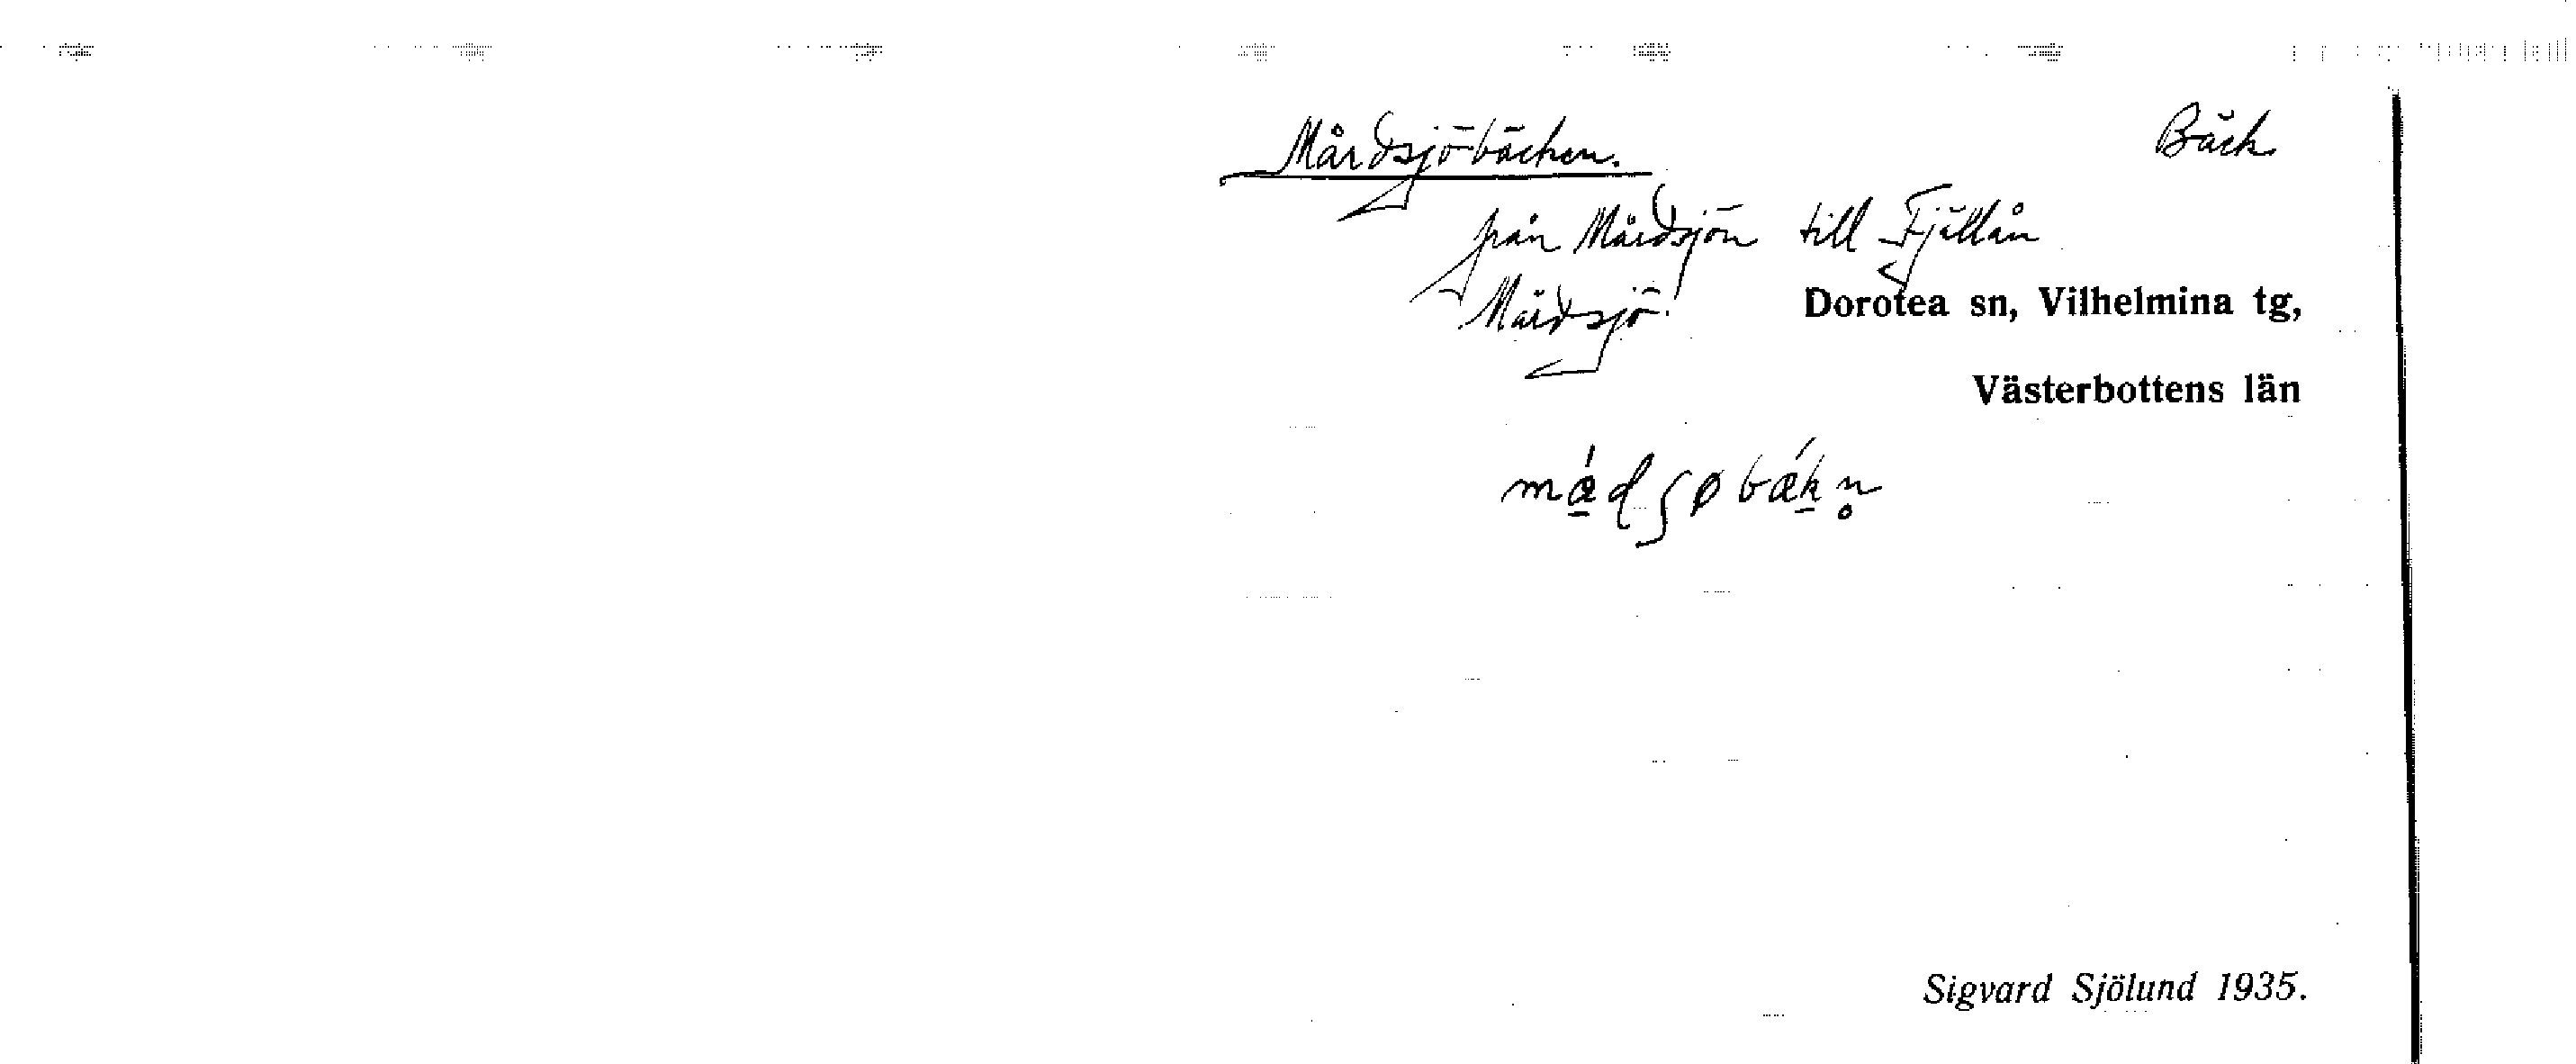 Mårdsjöbäcken. Bäck
från Mårdsjön till Fjällån
Mårdsjö. Dorotea sn, Vilhelmina tg,
Västerbottens län
Sigvard Sjölund 1935.